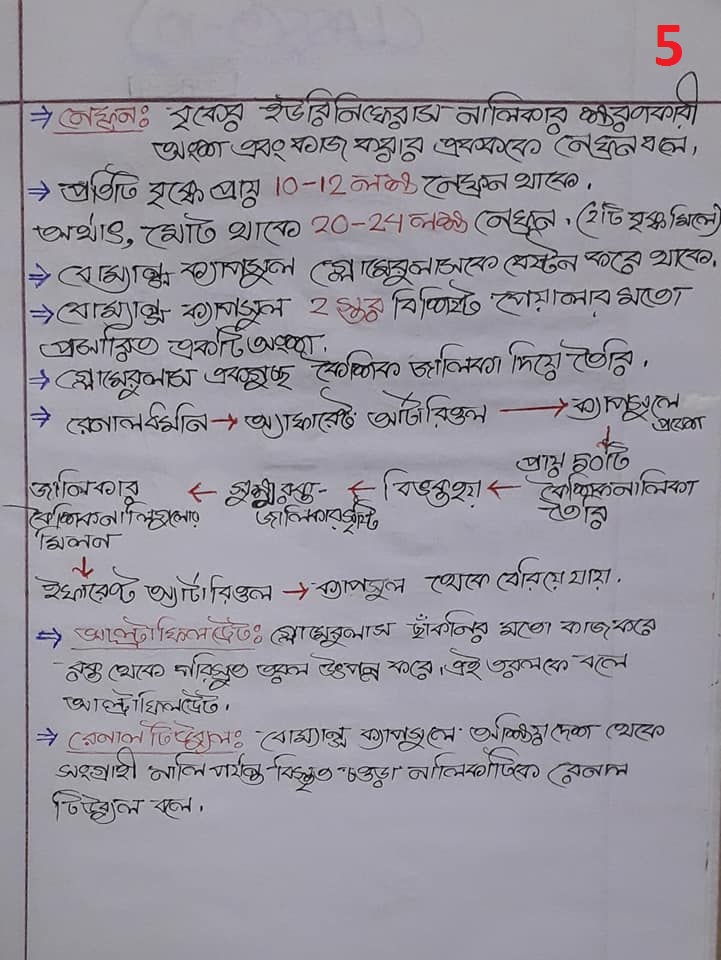 5
⇒ নেফ্রনঃ বৃক্কের ইউরিনিফেরাস নালিকার ক্ষরণকারী
অংশ এবং কাজ করার একককে নেফ্রন বলে।
⇒ প্রতিটি বৃক্কে প্রায় 10-12 লক্ষ নেফ্রন থাকে।
অর্থাৎ, মোট থাকে 20-24 লক্ষ নেফ্রন। (২টি বৃক্ক মিলে)
⇒ বোম্যান্স ক্যাপসুল গ্লোমেরুলাসকে বেষ্টন করে থাকে।
⇒ বোম্যান্স ক্যাপসুল 2 স্তর বিশিষ্ট পেয়ালার মতো
প্রসারিত একটি অংশ।
⇒ গ্লোমেরুলাস একগুচ্ছ কৈশিক জালিকা দিয়ে তৈরি।
⇒ রেনাল ধমনি → অ্যাফারেন্ট আর্টারিওল → ক্যাপসুলে
প্রবেশ
↓
প্রায় ৫০টি
কৈশিকনালিকা
তৈরি
← বিভক্ত হয় ← সূক্ষ্ম রক্ত-
জালিকার সৃষ্টি
← জালিকার
কৈশিকনালিগুলোর
মিলন
↓
ইফারেন্ট অ্যার্টারিওল → ক্যাপসুল থেকে বেরিয়ে যায়।
⇒ আল্ট্রাফিলট্রেটঃ গ্লোমেরুলাস ছাঁকনির মতো কাজ করে
রক্ত থেকে পরিস্রুত তরল উৎপন্ন করে। এই তরলকে বলে
আল্ট্রাফিলট্রেট।
⇒ রেনাল টিউব্যুলঃ বোম্যান্স ক্যাপসুলে অঙ্কীয়দেশ থেকে
সংগ্রাহী নালি পর্যন্ত বিস্তৃত চওড়া নালিকাটিকে রেনাল
টিউব্যুল বলে।